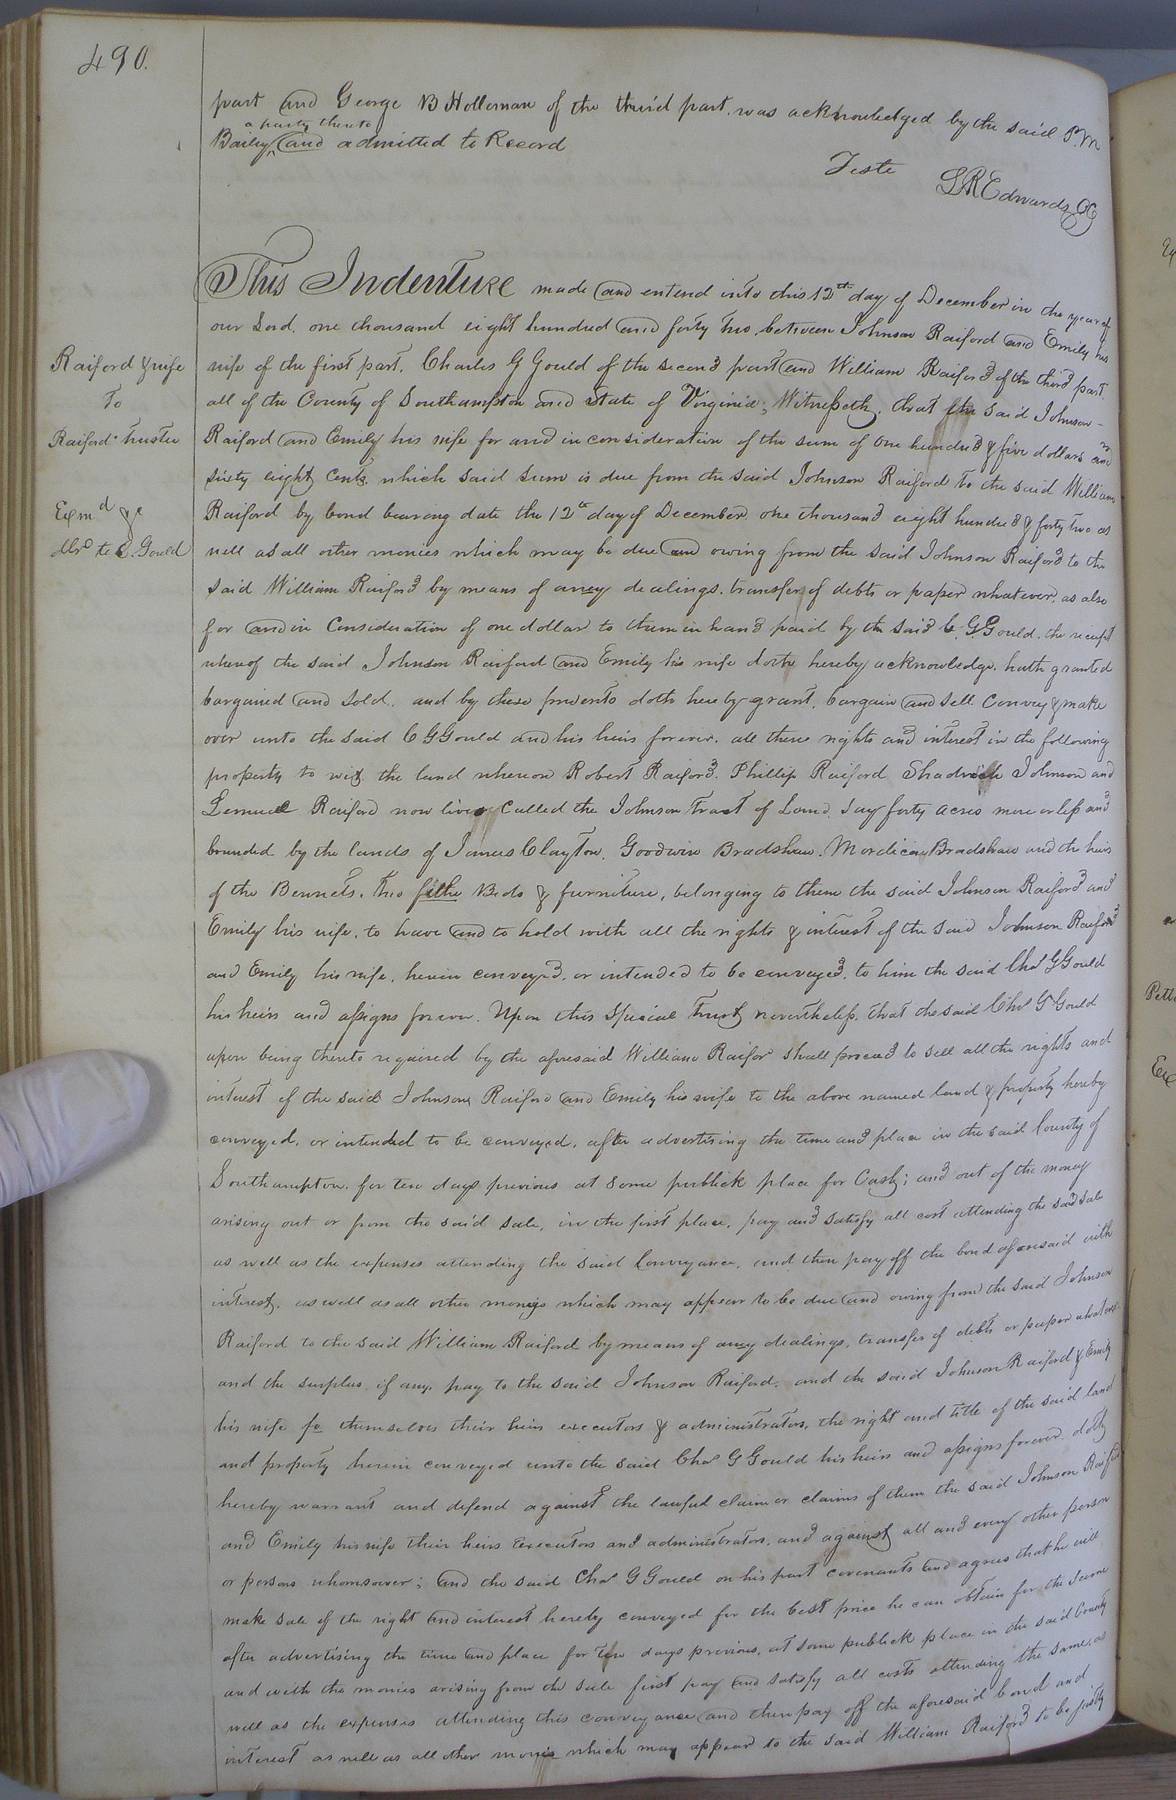 490.
part and George B Holleman of the third part. was acknowledged by the said P. M
a party thereto
Bailey and admitted to Record
Teste
L R Edwards CC
This Indenture made and entend into this 12th day of December in the year of
our Lord. one thousand eight hundred and forty two. between Johnson Raiford and Emily his
wife of the first part. Charles G Gould of the second part and William Raiford of the third part.
Raiford & wife
To
Raiford's Trustee
Exmd &c
dld to C. Gould
all of the County of Southampton and State of Virginia; Witnesseth. that the said Johnson -
Raiford and Emily his wife for and in consideration of the sum of one hundred & five dollars and
sixty eight cents. which said sum is due from the said Johnson Raiford to the said William
Raiford by bond bearing date the 12th day of December. one thousand eight hundred & forty two as
well as all other monies which may be due and owing from the said Johnson Raiford to the
said William Raiford by means of any dealings. transfer of debts or paper whatever. as also
for and in Consideration of one dollar to them in hand paid by the said C. G Gould. the receipt
whereof the said Johnson Raiford and Emily his wife doth hereby acknowledge. hath granted
bargained and sold. and by these presents doth hereby grant. bargain and sell Convey & make
over unto the said C G Gould and his heirs forever. all there rights and interest in the following
property to wit. the land whereon Robert Raiford. Phillip Raiford Shadrick Johnson and
Lemuel Raiford now lives called the Johnson Tract of Land. say forty acres more or less and
bounded by the lands of James Clayton. Goodwin Bradshaw. Mordica Bradshaw and the heirs
of the Bennets. two Beds & furniture, belonging to them the said Johnson Raiford and
Emily his wife. to have and to hold with all the rights & interest of the said Johnson Raiford
and Emily his wife. herein conveyed. or intended to be conveyed. to him the said Chas G Gould
his heirs and assigns forever. Upon this Special Trust nevertheless. that the said Chas G Gould
upon being thereto required by the aforesaid William Raifor shall proceed to sell all the rights and
interest of the said Johnson Raiford and Emily his wife to the above named land & property hereby
conveyed. or intended to be conveyed. after advertising the time and place in the said County of
Southampton. for ten days previous at some publick place for Cash; and out of the money
arising out or from the said sale, in the first place, pay and satisfy all cost attending the said sale
as well as the expenses attending the said Conveyance, and then pay off the bond aforesaid with
interest. as well as all other monies which may appear to be due and owing from the said Johnson
Raiford to the said William Raiford by means of any dealings, transfer of debts or paper whatever
and the surplus, if any. pay to the said Johnson Raiford. and the said Johnson Raiford & Emily
his wife for themselves their heirs executors & administrators, the right and title of the said land
and property herein conveyed unto the said Chas G Gould his heirs and assigns forever. doth
hereby warrant and defend against the lawful claim or claims of them the said Johnson Raiford
and Emily his wife their heirs Executors and administrators. and against all and every other person
or persons whomsoever; and the said Chas G Gould on his part covenants and agrees that he will
make sale of the right and interest hereby conveyed for the best price he can obtain for the same
after advertising the time and place for ten days previous. at some publick place in the said County
and with the monies arising from the sale first pay and satisfy all costs attending the same, as
well as the expenses attending this conveyance and then pay off the aforesaid bond and
interest as well as all other monies which may appear to the said William Raiford to be justly